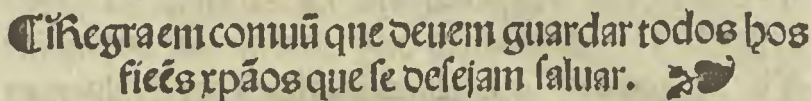 ¶ Regra em comuũ que deuem guardar todos hos
fieẽs xpãos que se desejam saluar.